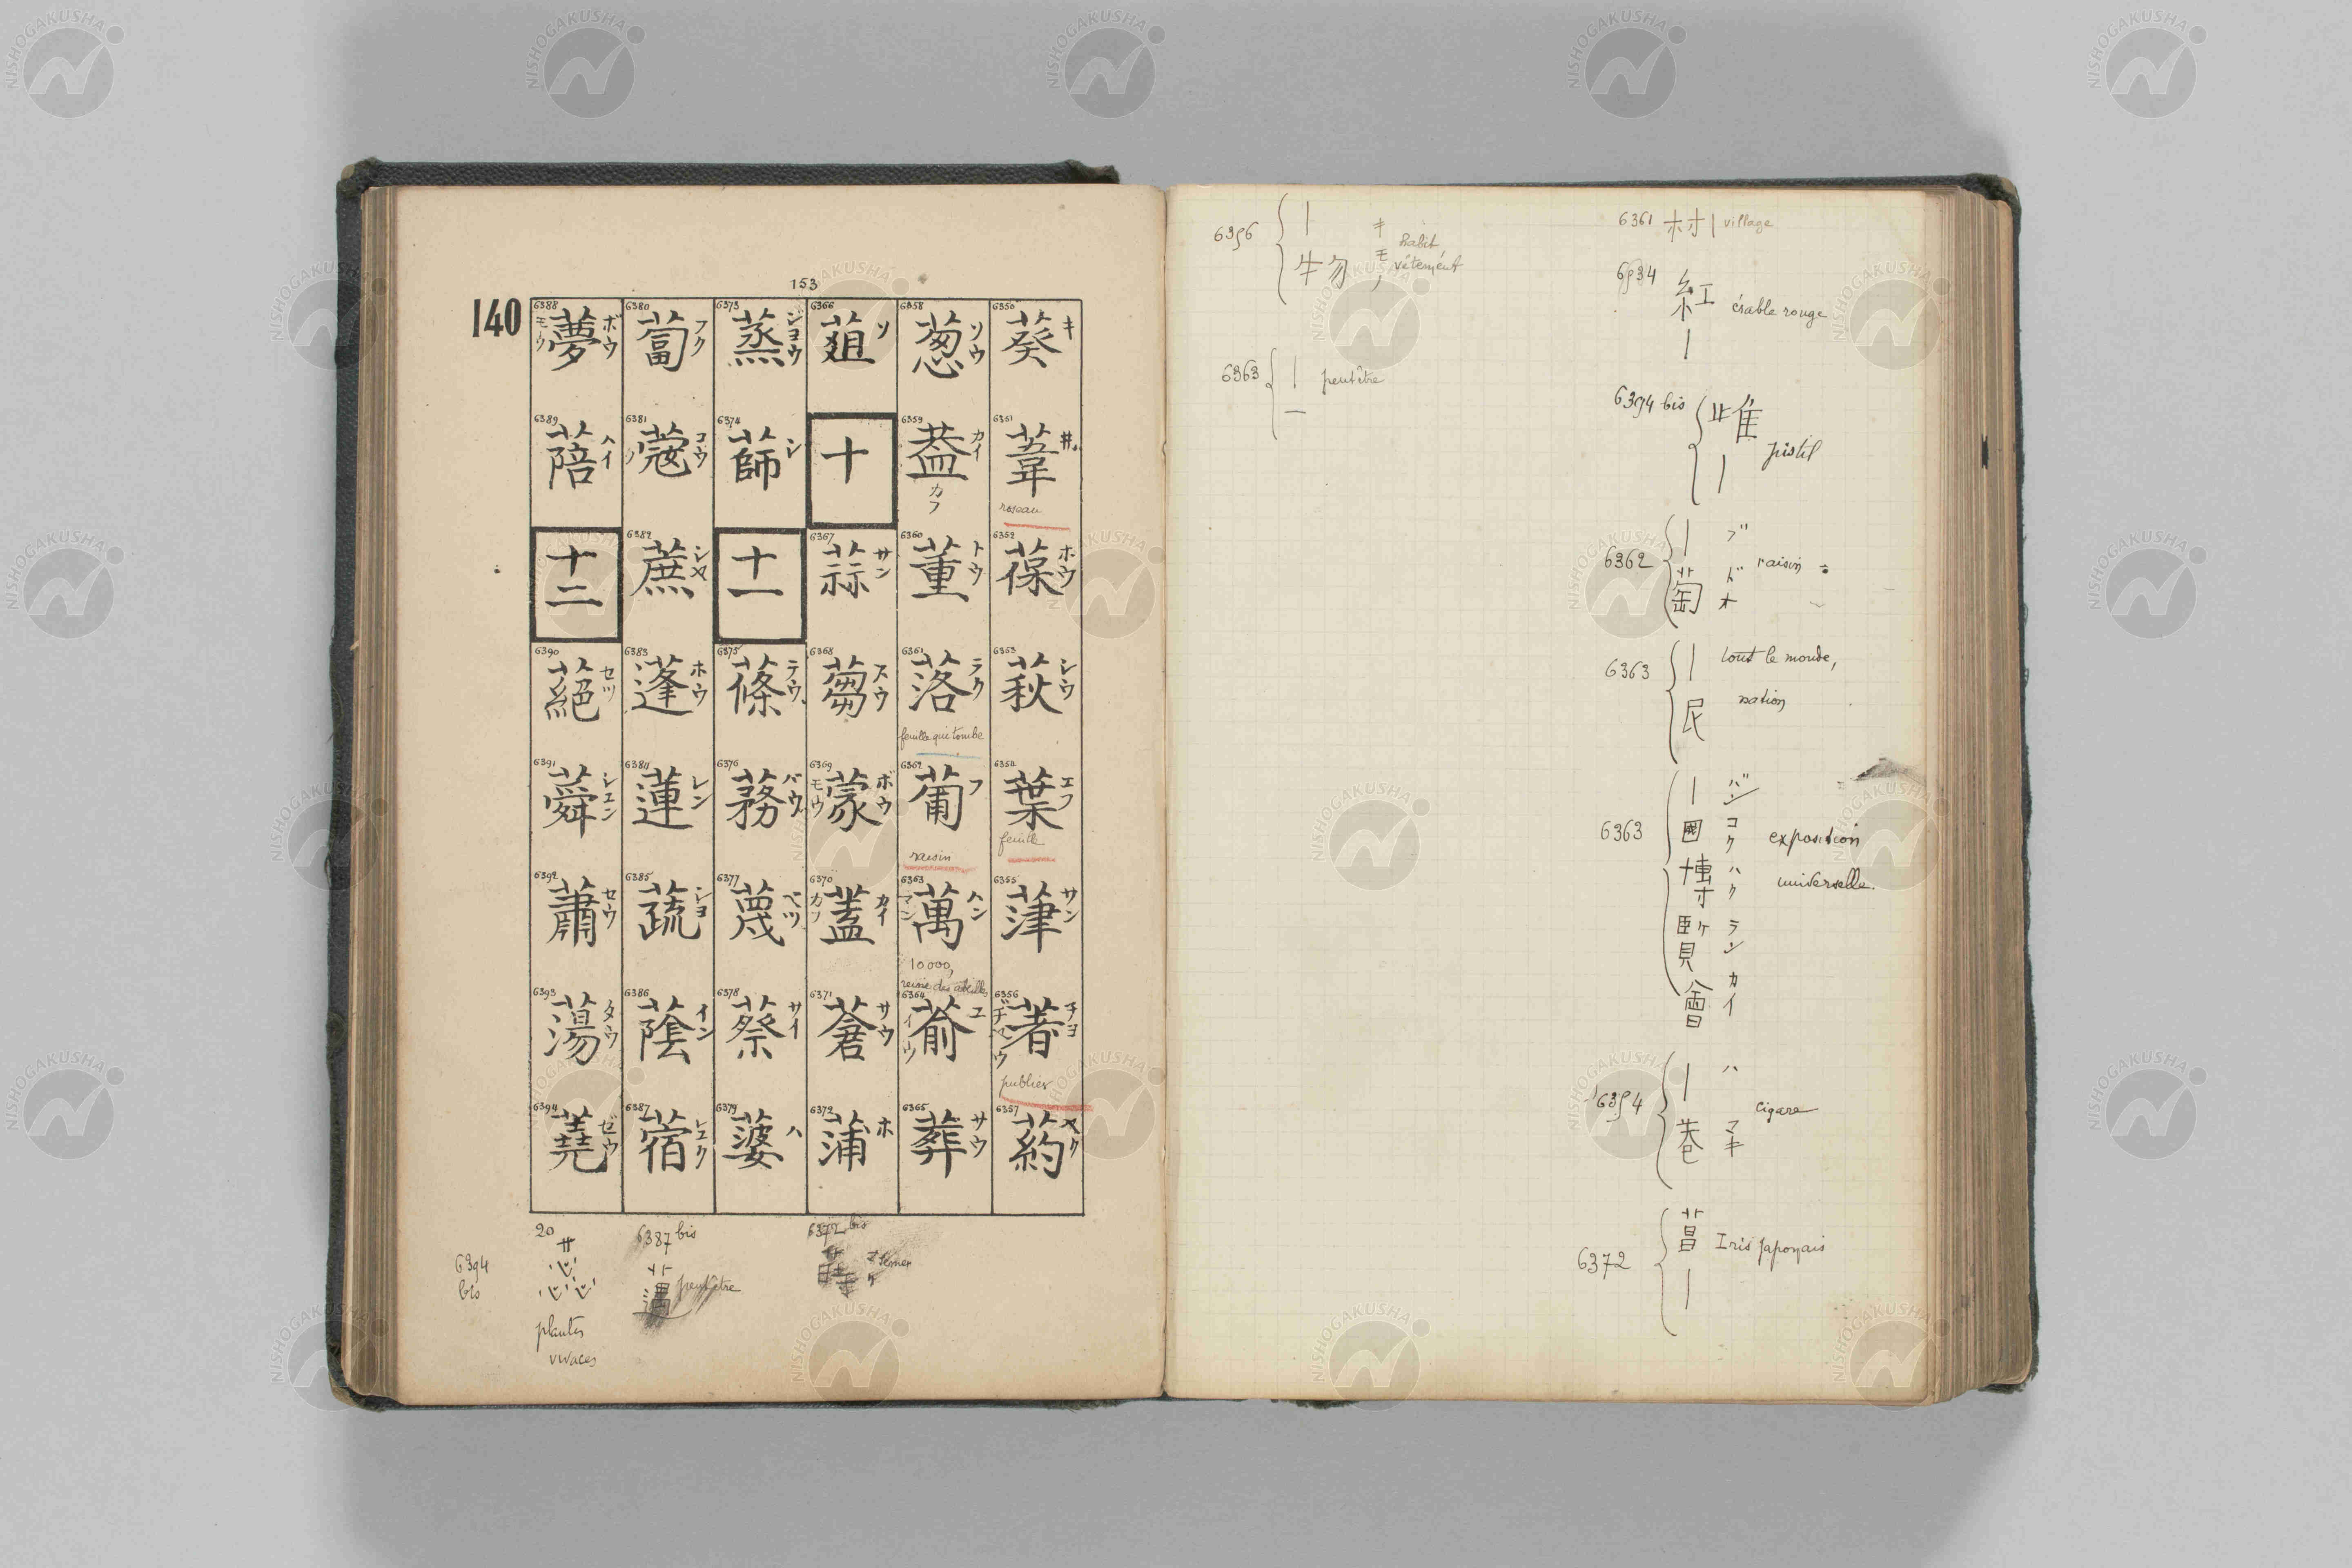 153
140
6350 葵 キ
6351 葦 ヰ
roseau
6352 葆 ホウ
6353 萩 シウ
6354 葉 エフ
feuille
6355 葏 サン
6356 著 チヨ
publier
6357 葯 ヤク
6358 葱 ソウ
6359 葢 カイ カフ
6360 董 トウ
6361 落 ラク
feuille qui tombe
6362 葡 フ
raisin
6363 萬 ハン マン
10000,
reine des abeilles
6364 萮 ユ
6365 葬 サウ
6366 葅 ソ
十
6367 蒜 サン
6368 蒭 スウ
6369 蒙 ボウ モウ
6370 蓋 カイ カフ
6371 蒼 サウ
6372 蒲 ホ
6373 蒸 ジヨウ
6374 蒒 シ
十一
6375 蓧 テウ
6376 蓩 バウ
6377 蔑 ベツ
6378 蔡 サイ
6379 蔢 ハ
6380 蔔 フク
6381 蔻 コウ
6382 蔗 シヤ
6383 蓬 ホウ
6384 蓮 レン
6385 蔬 シヨ
6386 蔭 イン
6387 蓿 シユク
6388 夢 ボウ モウ
6389 蔀 ハイ
十二
6390 蕝 セツ
6391 蕣 シユン
6392 蕭 セウ
6393 蕩 タウ
6394 蕘 ゼウ
6372 bis
semer
6387 bis
peut être
20
6394
bis
蕊
plantes
vivaces
6361 村| village
紅| érable rouge
6394 bis 雌| pistil
6362 |萄 ブドオ raisin
6363 |民 tout le monde,
nation
6363 |國博覧會 バンコクハクランカイ exposition
universelle.
6354 |巻 ハマキ cigare
6372 菖| Iris japonais
6356 |物 キモノ habit
vêtement
6363 |一 peut être
NISHOGAKUSHA